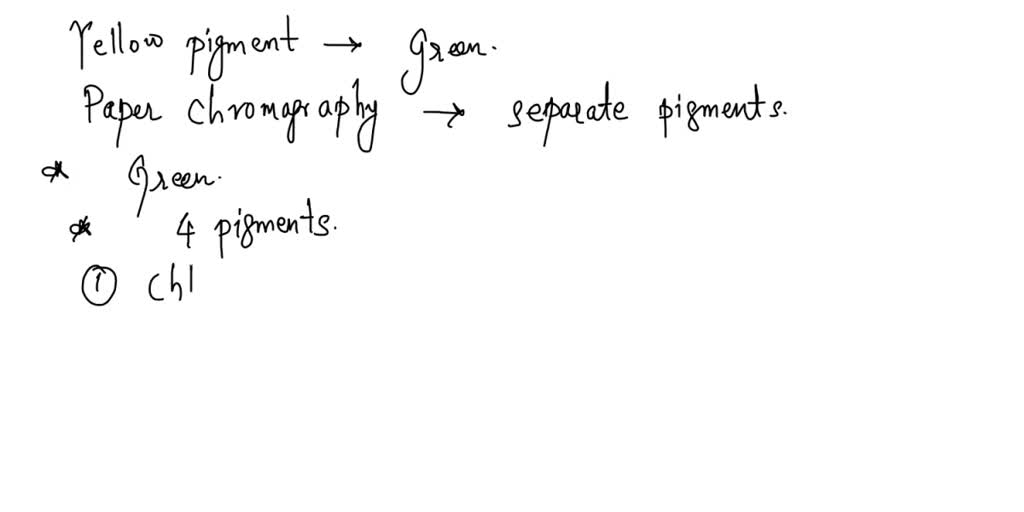 Yellow pigment → Green.
Paper chromography → separate pigments.
* Green.
* 4 pigments.
① chl